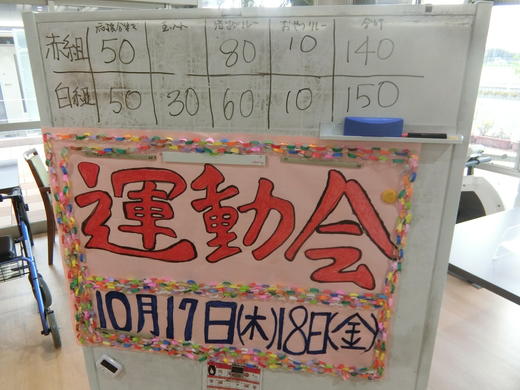 応援合戦 玉入れ 合計
赤組 50 80 10 140
白組 50 30 60 10 150
運動会
10月17日(木)18日(金)